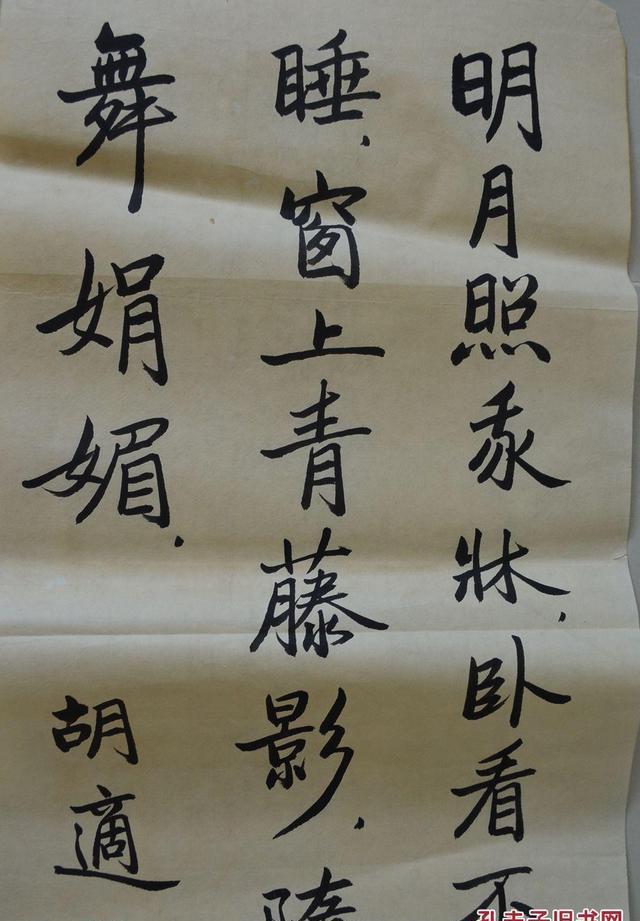 明月照我牀，卧看不
睡，窗上青藤影，隨
舞娟媚，
胡適
孔夫子旧书网